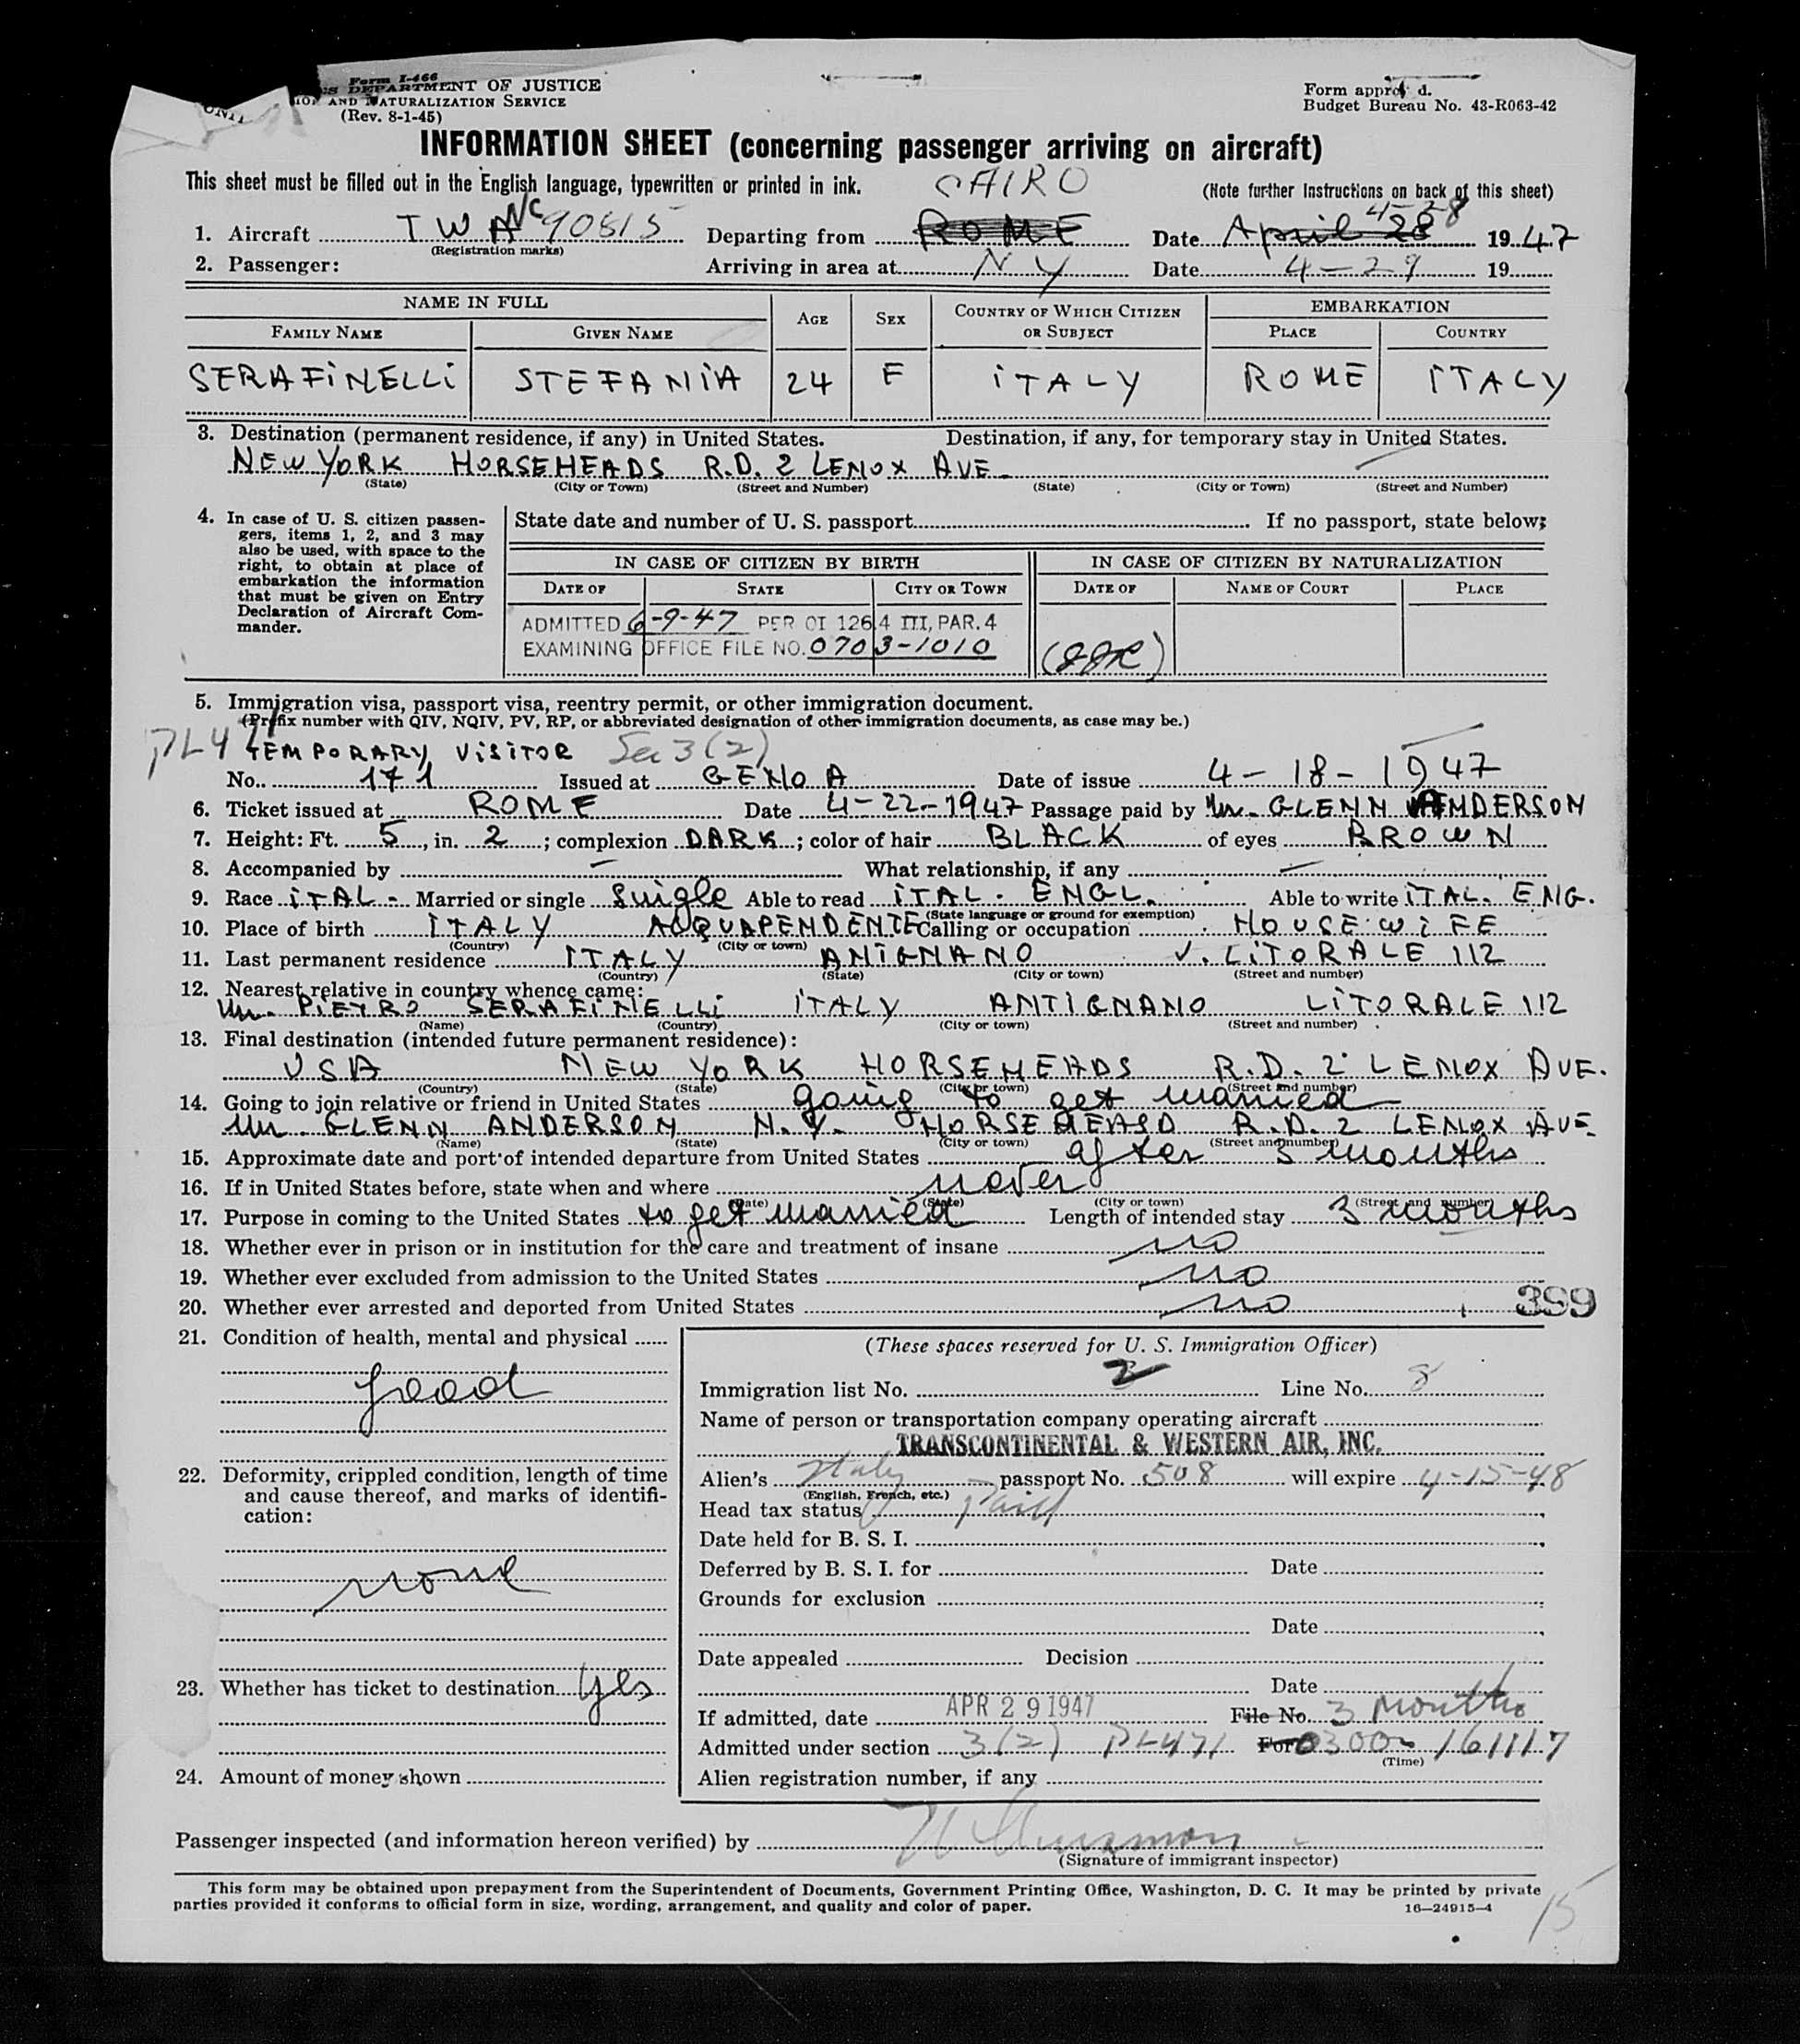 Form I-466
DEPARTMENT OF JUSTICE
AND NATURALIZATION SERVICE
(Rev. 8-1-45)
Form approv d.
Budget Bureau No. 43-R063-42
INFORMATION SHEET (concerning passenger arriving on aircraft)
This sheet must be filled out in the English language, typewritten or printed in ink.
(Note further Instructions on back of this sheet)
CAIRO
4-28
1. Aircraft TWA NC 90815 Departing from ROME Date April 28 1947
(Registration marks)
2. Passenger: Arriving in area at NY Date 4-29 19
NAME IN FULL AGE SEX COUNTRY OF WHICH CITIZEN OR SUBJECT EMBARKATION
FAMILY NAME GIVEN NAME PLACE COUNTRY
SERAFINELLI STEFANIA 24 F ITALY ROME ITALY
3. Destination (permanent residence, if any) in United States. Destination, if any, for temporary stay in United States.
NEW YORK HORSEHEADS R.D. 2 LENOX AVE.
(State) (City or Town) (Street and Number) (State) (City or Town) (Street and Number)
4. In case of U. S. citizen passen-
gers, items 1, 2, and 3 may
also be used, with space to the
right, to obtain at place of
embarkation the information
that must be given on Entry
Declaration of Aircraft Com-
mander.
State date and number of U. S. passport If no passport, state below:
IN CASE OF CITIZEN BY BIRTH IN CASE OF CITIZEN BY NATURALIZATION
DATE OF STATE CITY OR TOWN DATE OF NAME OF COURT PLACE
ADMITTED 6-9-47 PER OI 126.4 III, PAR. 4
EXAMINING OFFICE FILE NO. 0703-1010
5. Immigration visa, passport visa, reentry permit, or other immigration document.
(Prefix number with QIV, NQIV, PV, RP, or abbreviated designation of other immigration documents, as case may be.)
PL471 TEMPORARY VISITOR Sec 3(2)
No. 171 Issued at GENOA Date of issue 4-18-1947
6. Ticket issued at ROME Date 4-22-1947 Passage paid by Mr. GLENN ANDERSON
7. Height: Ft. 5, in. 2; complexion DARK; color of hair BLACK of eyes BROWN
8. Accompanied by – What relationship, if any –
9. Race ITAL- Married or single Single Able to read ITAL. ENGL. Able to write ITAL. ENG.
(State language or ground for exemption)
10. Place of birth ITALY ACQUAPENDENTE Calling or occupation HOUSEWIFE
(Country) (City or town)
11. Last permanent residence ITALY ANIGNANO V. LITORALE 112
(Country) (State) (City or town) (Street and number)
12. Nearest relative in country whence came:
Mr. PIETRO SERAFINELLI ITALY ANTIGNANO LITORALE 112
(Name) (Country) (City or town) (Street and number)
13. Final destination (intended future permanent residence):
USA NEW YORK HORSEHEADS R.D. 2 LENOX AVE.
(Country) (State) (City or town) (Street and number)
14. Going to join relative or friend in United States going to get married
Mr. GLENN ANDERSON N.Y. HORSEHEASD R.D. 2 LENOX AVE.
(Name) (State) (City or town) (Street and number)
15. Approximate date and port of intended departure from United States after 3 months
16. If in United States before, state when and where never
(Date) (State) (City or town) (Street and number)
17. Purpose in coming to the United States to get married Length of intended stay 3 months
18. Whether ever in prison or in institution for the care and treatment of insane no
19. Whether ever excluded from admission to the United States no
20. Whether ever arrested and deported from United States no
399
21. Condition of health, mental and physical
good
22. Deformity, crippled condition, length of time
and cause thereof, and marks of identifi-
cation:
none
23. Whether has ticket to destination yes
24. Amount of money shown
(These spaces reserved for U. S. Immigration Officer)
Immigration list No. 2 Line No. 8
Name of person or transportation company operating aircraft
TRANSCONTINENTAL & WESTERN AIR, INC.
Alien's Italy passport No. 508 will expire 4-15-48
(English, French, etc.)
Head tax status paid
Date held for B. S. I.
Deferred by B. S. I. for Date
Grounds for exclusion
Date
Date appealed Decision
Date
If admitted, date APR 29 1947 File No. 3 Months
Admitted under section 3(2) PL471 For 0300-161117
(Time)
Alien registration number, if any
Passenger inspected (and information hereon verified) by
(Signature of immigrant inspector)
This form may be obtained upon prepayment from the Superintendent of Documents, Government Printing Office, Washington, D. C. It may be printed by private
parties provided it conforms to official form in size, wording, arrangement, and quality and color of paper.
16-24915-4
15